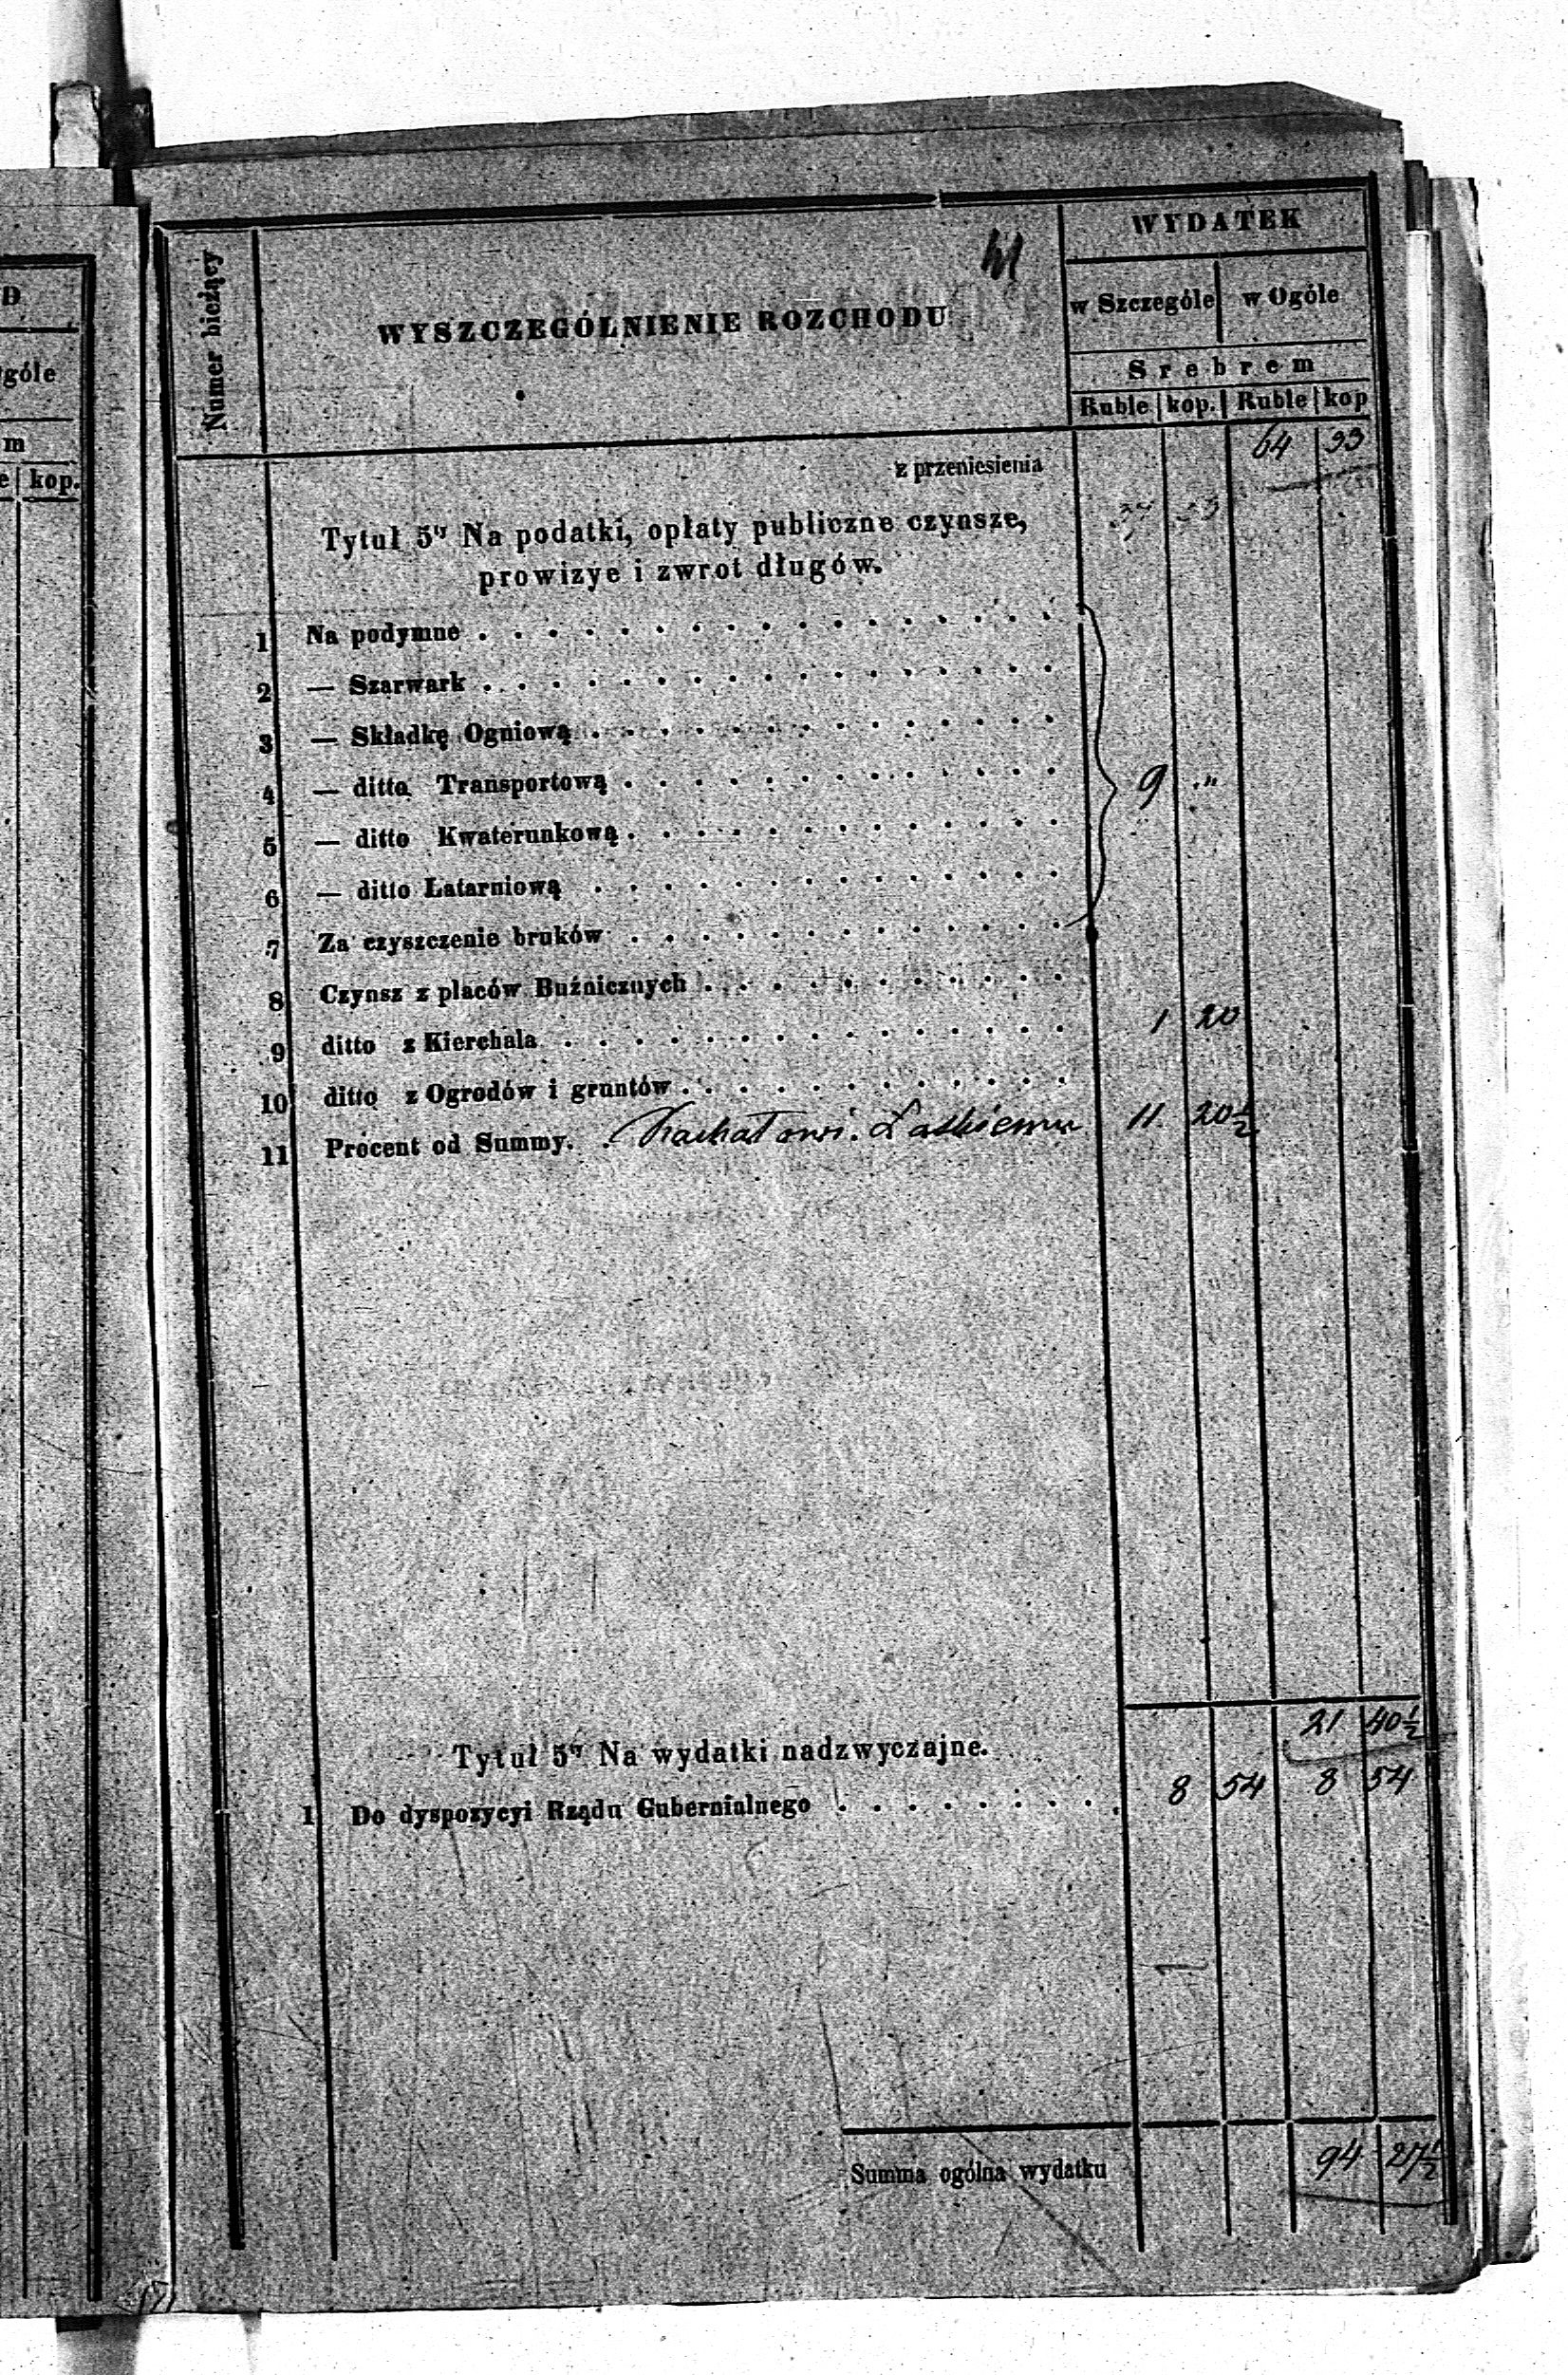 D
góle
m
e kop.
Numer bieżący
WYSZCZEGÓLNIENIE ROZCHODU
WYDATEK
w Szczególe w Ogóle
Srebrem
Ruble kop. Ruble kop
z przeniesienia 64 33
Tytuł 5ty Na podatki, opłaty publiczne czynsze,
prowizye i zwrot długów.
1 Na podymne
2 — Szarwark
3 — Składkę Ogniową
4 — ditto Transportową 9 "
5 — ditto Kwaterunkową
6 — ditto Latarniową
7 Za czyszczenie bruków
8 Czynsz z placów Buźnicznych
9 ditto z Kierchala 1 20
10 ditto z Ogrodów i gruntów
11 Procent od Summy. Łaskiemu 11 20½
21 40½
Tytuł 5ty Na wydatki nadzwyczajne.
1 Do dyspozycyi Rządu Gubernialnego 8 54 8 54
Summa ogólna wydatku 94 27½